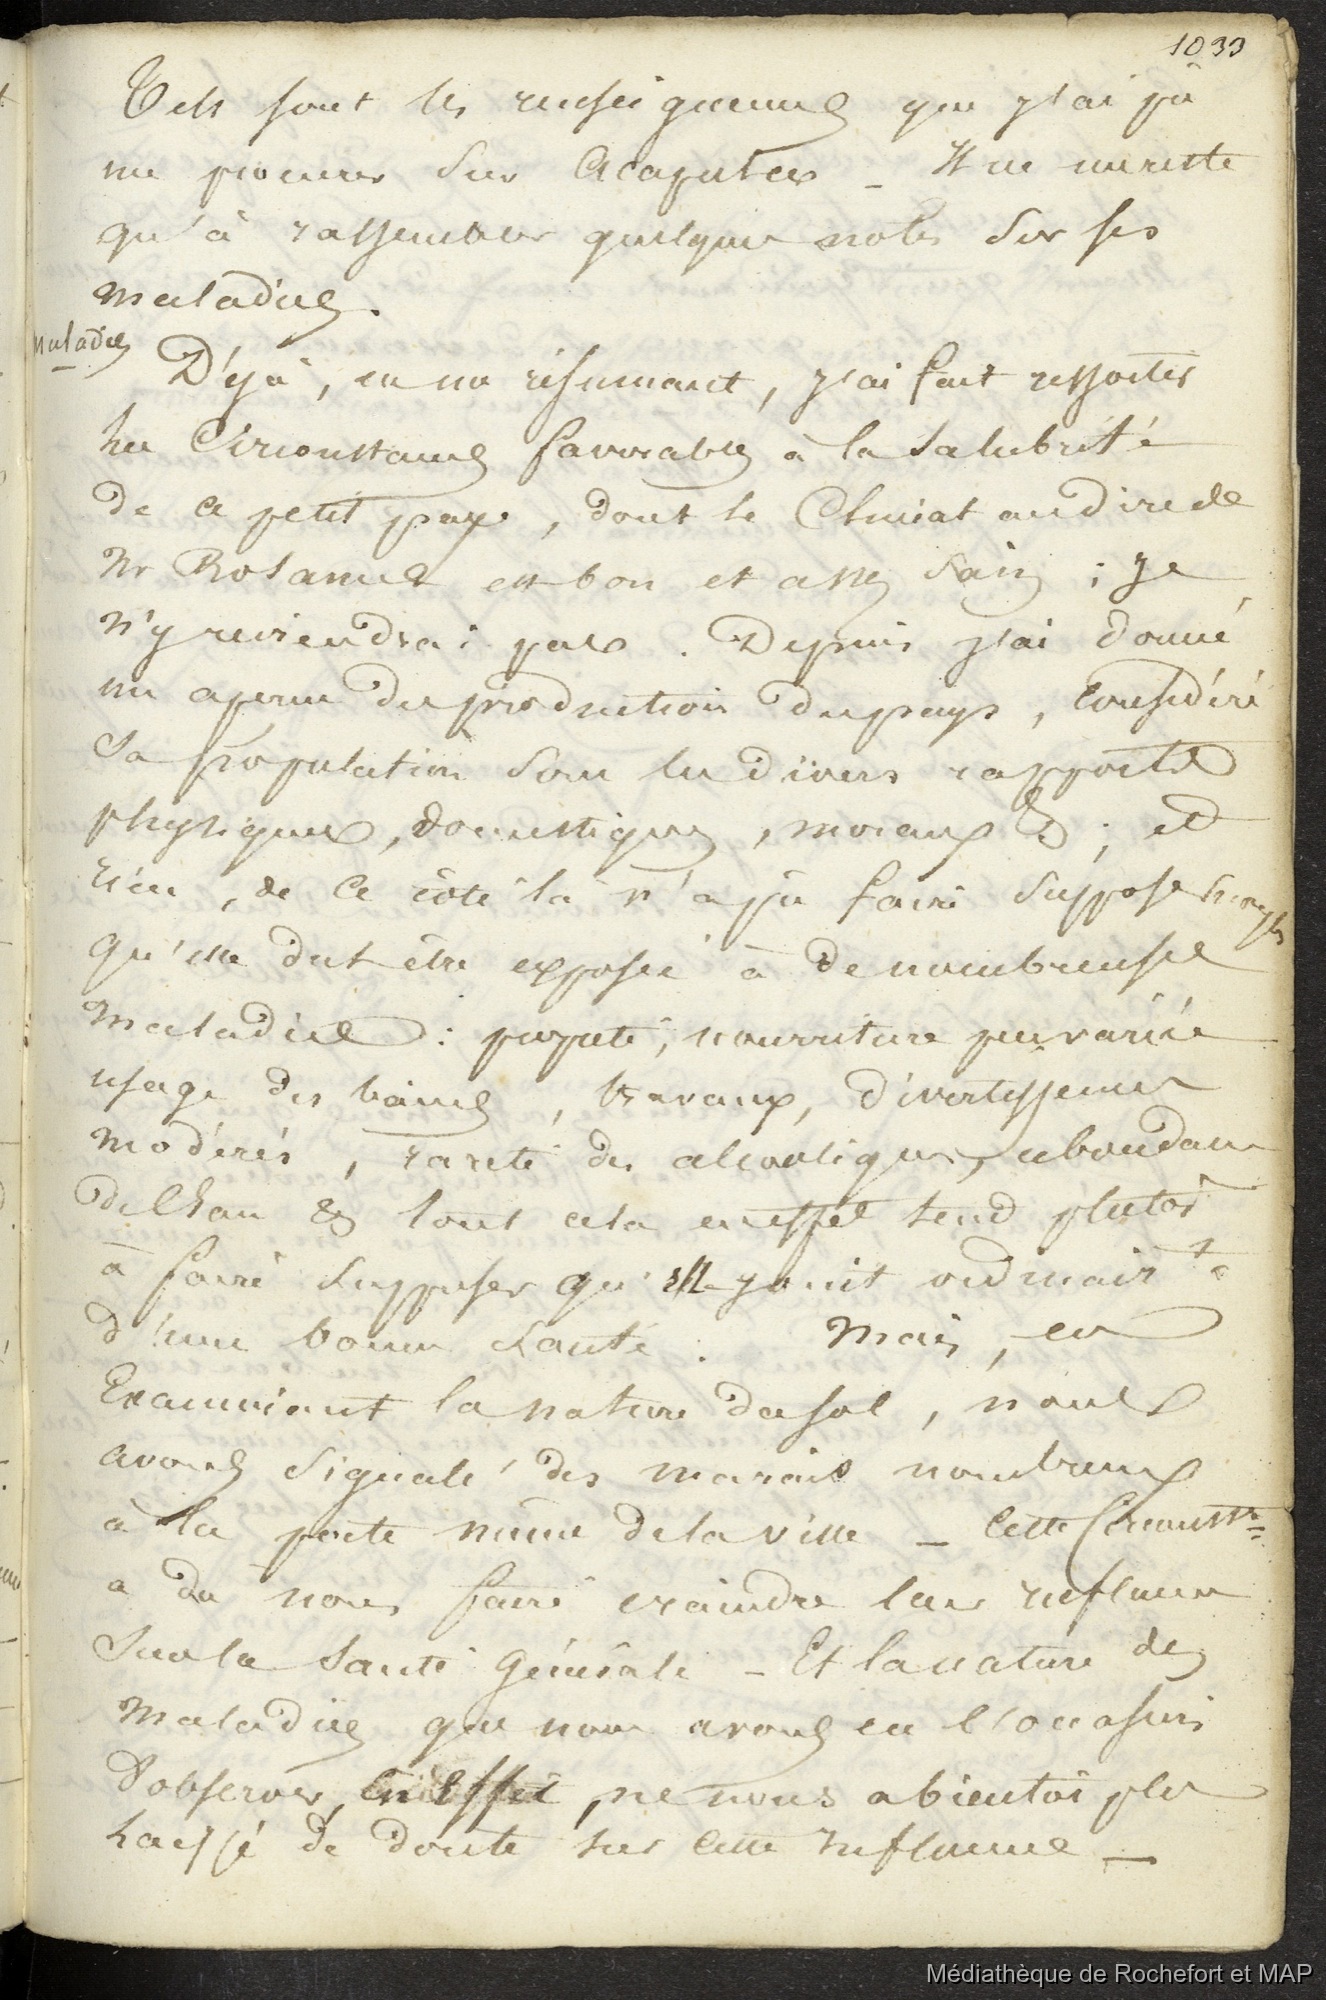 1033
Tels sont les renseignemens que j'ai pu
me procurer sur Acapulco – Il ne me reste
qu'à rassembler quelques notes sur ses
maladies.
maladies
Déjà, en me résumant, j'ai fait ressortir
les Circonstances favorables à la salubrité
de ce petit pays, dont le Climat au dire de
Mr Rosamel est bon et assez sain ; je
n'y reviendrai pas. Depuis j'ai donné
un aperçu des production du pays, considéré
sa population sous les divers rapports
physiques, domestiques, moraux & ; et
rien, de ce côté là n'a pu faire supposer
qu'elle dut être exposée à de nombreuses
maladies : propreté, nourriture peu variée
usage des bains, travaux, divertissemens
modérés, rareté des alcooliques, abondance
de l'eau & tout cela en effet tend plutôt
à faire supposer qu'elle jouit ordinairt
d'une bonne santé. Mais, en
Examinant la nature du sol, nous
avons signalé des marais nombreux
à la porte même de la ville – Cette Circonstce
a du nous faire craindre leur influence
sur la santé générale – Et la nature des
maladies que nous avons eu l'occasion
d'observer, en Effet, ne nous a bientôt plus
laissé de doute sur cette influence –
Médiathèque de Rochefort et MAP